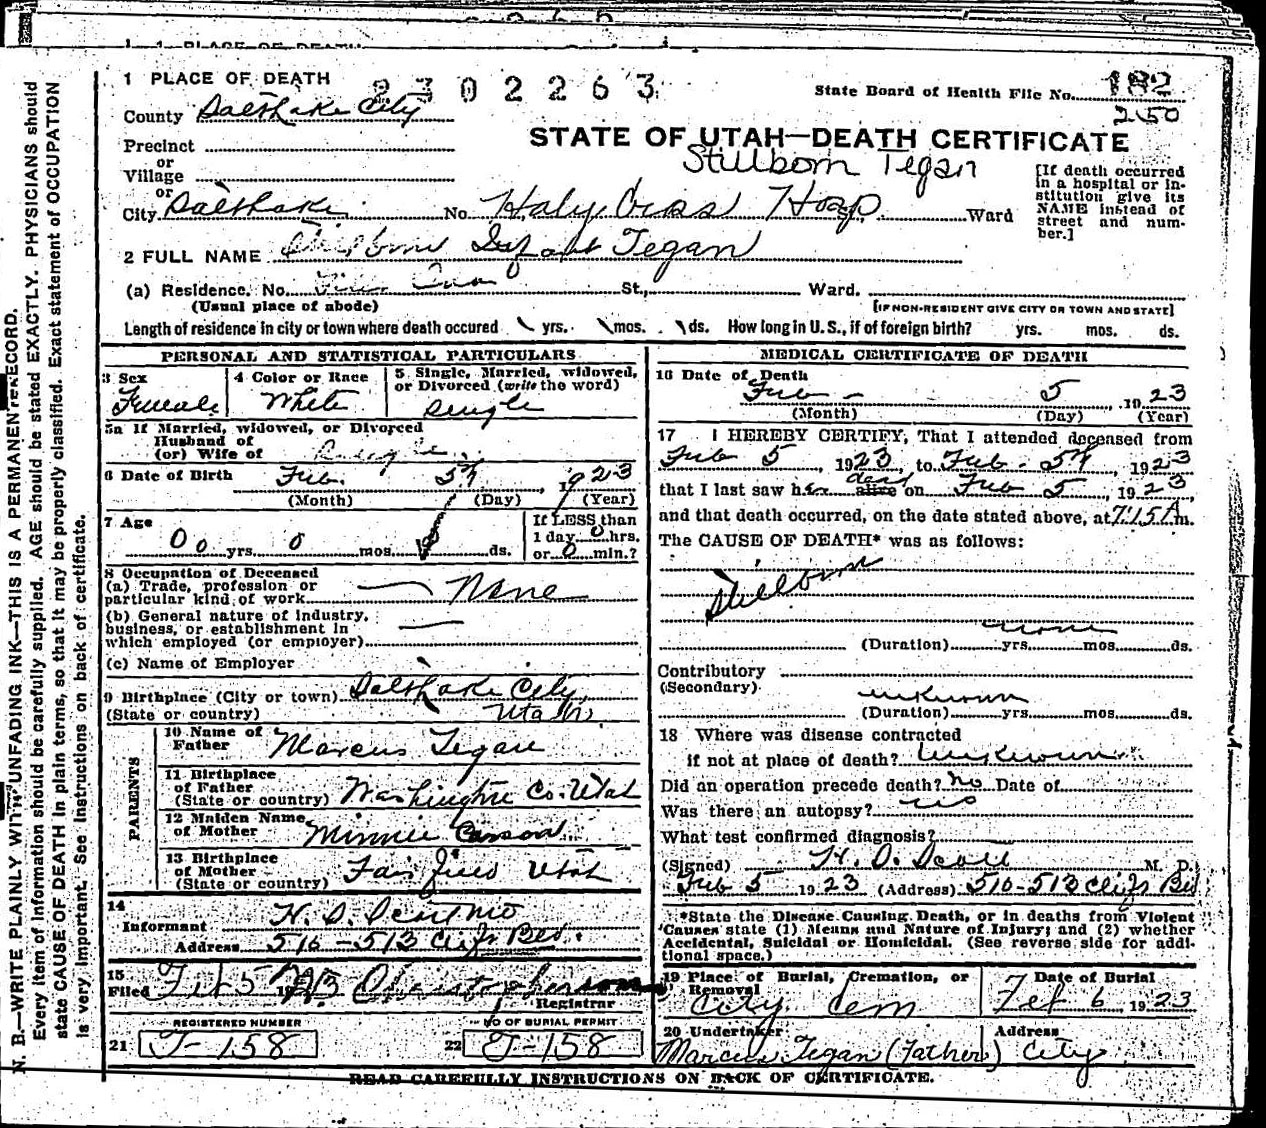 1 PLACE OF DEATH
2302263
State Board of Health File No. 182
County Salt Lake City
250
STATE OF UTAH—DEATH CERTIFICATE
Precinct
Stillborn Tegan
or
Village
or
City Salt Lake No. Holy Cross Hosp Ward
[If death occurred in a hospital or institution give its NAME instead of street and number.]
2 FULL NAME Stillborn Infant Tegan
(a) Residence. No. St., Ward.
(Usual place of abode)
[IF NON-RESIDENT GIVE CITY OR TOWN AND STATE]
Length of residence in city or town where death occured yrs. mos. ds. How long in U. S., if of foreign birth? yrs. mos. ds.
PERSONAL AND STATISTICAL PARTICULARS
3 Sex
Female
4 Color or Race
White
5 Single, Married, widowed,
or Divorced (write the word)
Single
5a If Married, widowed, or Divorced
Husband of
(or) Wife of Single
6 Date of Birth Feb. 5th, 1923
(Month) (Day) (Year)
7 Age
00 yrs. 0 mos. ds.
If LESS than
1 day 0 hrs.
or 0 min.?
8 Occupation of Deceased
(a) Trade, profession or
particular kind of work None
(b) General nature of industry,
business, or establishment in
which employed (or employer)
(c) Name of Employer
9 Birthplace (City or town) Salt Lake City
(State or country) Utah
PARENTS
10 Name of
Father Marcus Tegan
11 Birthplace
of Father
(State or country) Washington Co. Utah
12 Maiden Name
of Mother Minnie Carson
13 Birthplace
of Mother
(State or country) Fairfield Utah
14
Informant
Address 516-513 Clift Bld.
15
Filed Feb 5 1923 Christopherson
Registrar
REGISTERED NUMBER
21 J-158
NO OF BURIAL PERMIT
22 J-158
MEDICAL CERTIFICATE OF DEATH
16 Date of Death
Feb - 5, 1923
(Month) (Day) (Year)
17 I HEREBY CERTIFY, That I attended deceased from
Feb 5, 1923, to Feb. 5th, 1923
that I last saw her alive dead on Feb 5, 1923,
and that death occurred, on the date stated above, at 7:15 A m.
The CAUSE OF DEATH* was as follows:
Stillborn
none
(Duration) yrs. mos. ds.
Contributory
(Secondary)
unknown
(Duration) yrs. mos. ds.
18 Where was disease contracted
if not at place of death? Unknown
Did an operation precede death? No Date of
Was there an autopsy? no
What test confirmed diagnosis?
(Signed) M. D.
Feb 5 1923 (Address) 516-513 Clift Bld
*State the Disease Causing Death, or in deaths from Violent
Causes state (1) Means and Nature of Injury; and (2) whether
Accidental, Suicidal or Homicidal. (See reverse side for addi-
tional space.)
19 Place of Burial, Cremation, or
Removal
City Cem
Date of Burial
Feb 6, 1923
20 Undertaker
Marcus Tegan (Father)
Address
City
READ CAREFULLY INSTRUCTIONS ON BACK OF CERTIFICATE.
N. B.—WRITE PLAINLY WITH UNFADING INK—THIS IS A PERMANENT RECORD.
Every item of information should be carefully supplied. AGE should be stated EXACTLY. PHYSICIANS should
state CAUSE OF DEATH in plain terms, so that it may be properly classified. Exact statement of OCCUPATION
is very important. See instructions on back of certificate.